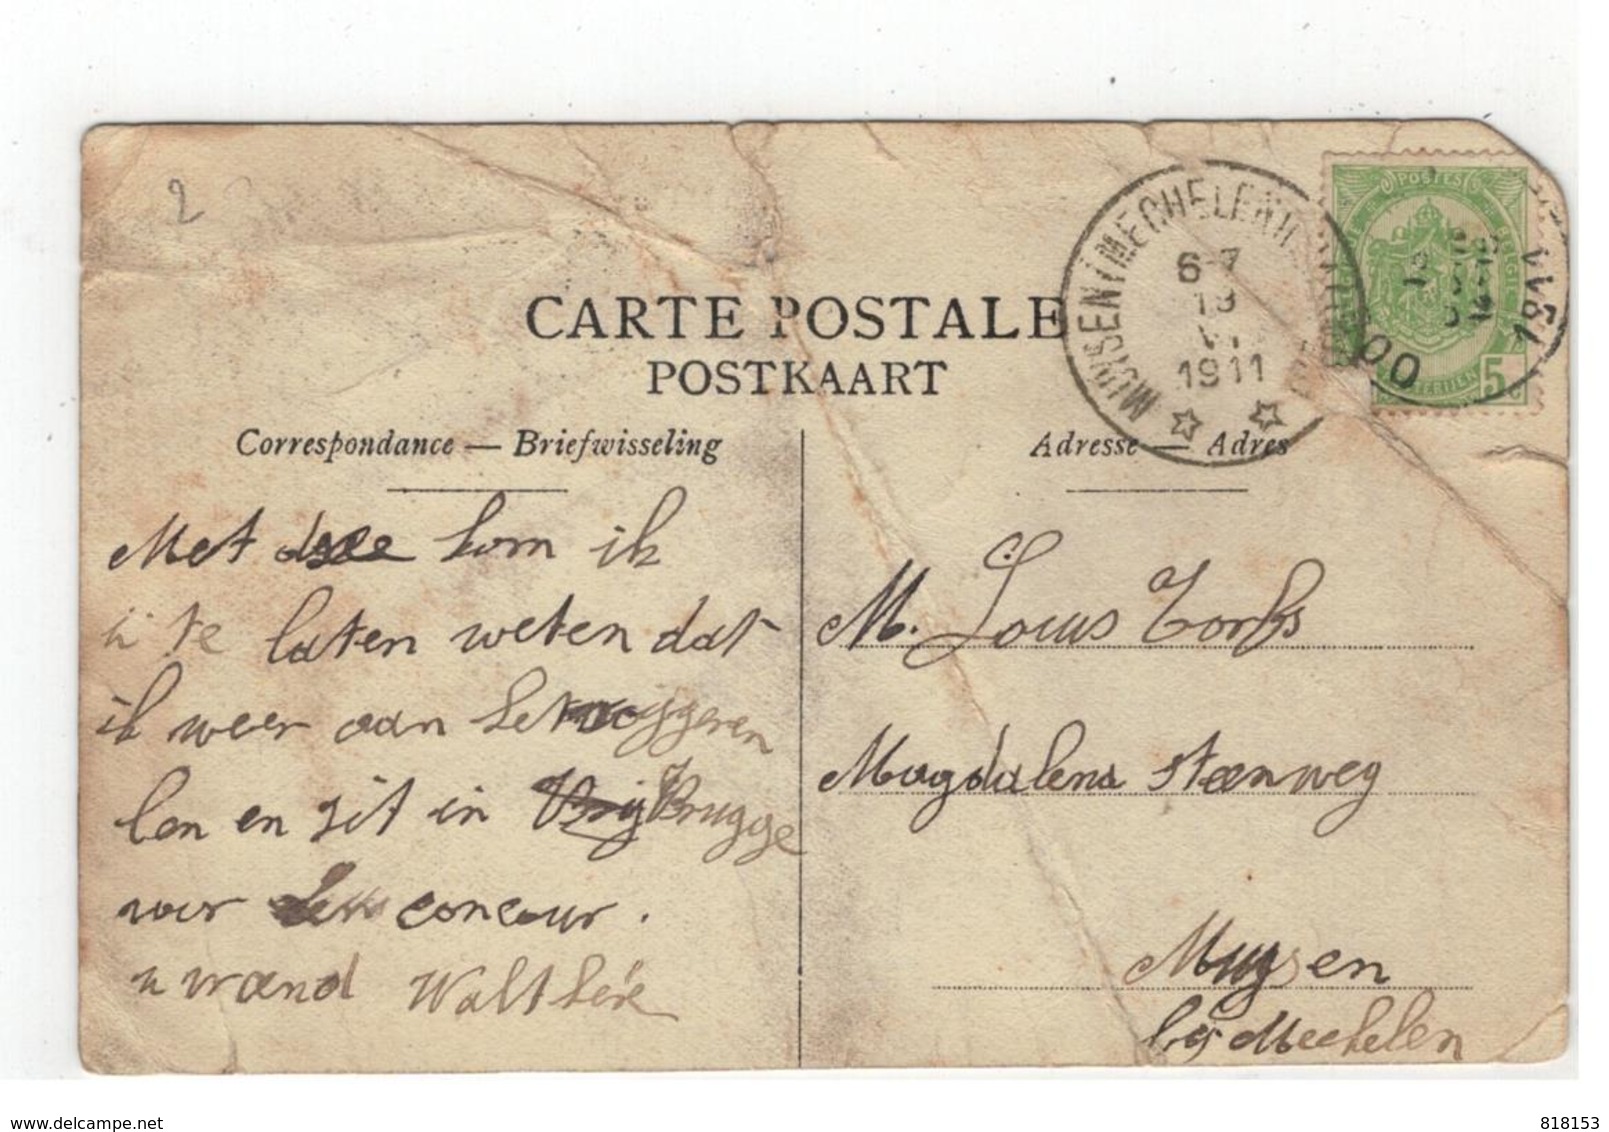 2
CARTE POSTALE
POSTKAART
Correspondance — Briefwisseling
Met dee kom ik
u te laten weten dat
ik weer aan het
len en zit in Brugge
voor concour.
u vrind Walthére
Adresse — Adres
M. Louis Torfs
Magdalena steenweg
Muysen
bij Mechelen
MUYSEN (MECHELEN
6-7
1911
POSTES
5
www.delcampe.net
818153